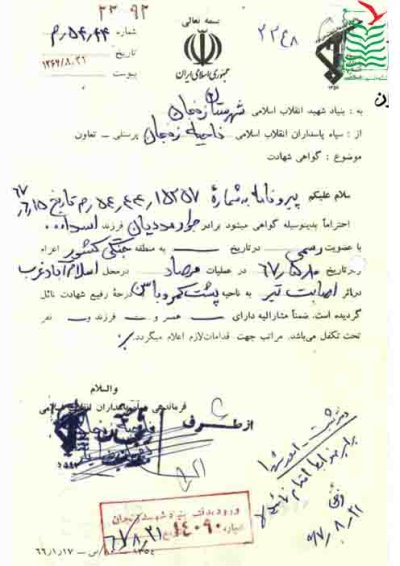 ۲۳۹۲
بسمه تعالی
شماره ۵۴،۴۴ م
۲۲۴۸
تاریخ ۱۳۶۷/۸/۲۱
پیوست
جمهوری اسلامی ایران
به : بنیاد شهید انقلاب اسلامی شهرستان زنجان
از : سپاه پاسداران انقلاب اسلامی ناحیه زنجان پرسنلی – تعاون
موضوع : گواهی شهادت
سلام علیکم پیرو نامه به شماره ۱۵۲۵۷، ۵۴،۴۴ م تاریخ ۶۷/۶/۱۵
احتراماً بدینوسیله گواهی میشود برادر جواد مددیان فرزند اسداله
با عضویت رسمی در تاریخ — به منطقه جنگی کشور اعزام
و در تاریخ ۶۷/۵/۸ در عملیات مرصاد در محل اسلام آباد غرب
در اثر اصابت تیر به ناحیه پشت کمر و باسن درجه رفیع شهادت نائل
گردیده است. ضمناً مشارالیه دارای — همسر و — فرزند و — نفر
تحت تکفل می‌باشد. مراتب جهت اقدامات لازم اعلام میگردد.
والسلام
فرماندهی سپاه پاسداران انقلاب اسلامی
از طرف
ورود بدفتر بنیاد شهید زنجان
شماره ۱۴۰۹۰
۶۷/۸/۲۱
۶۷/۸/۲۱
۶۶/۱/۱۷